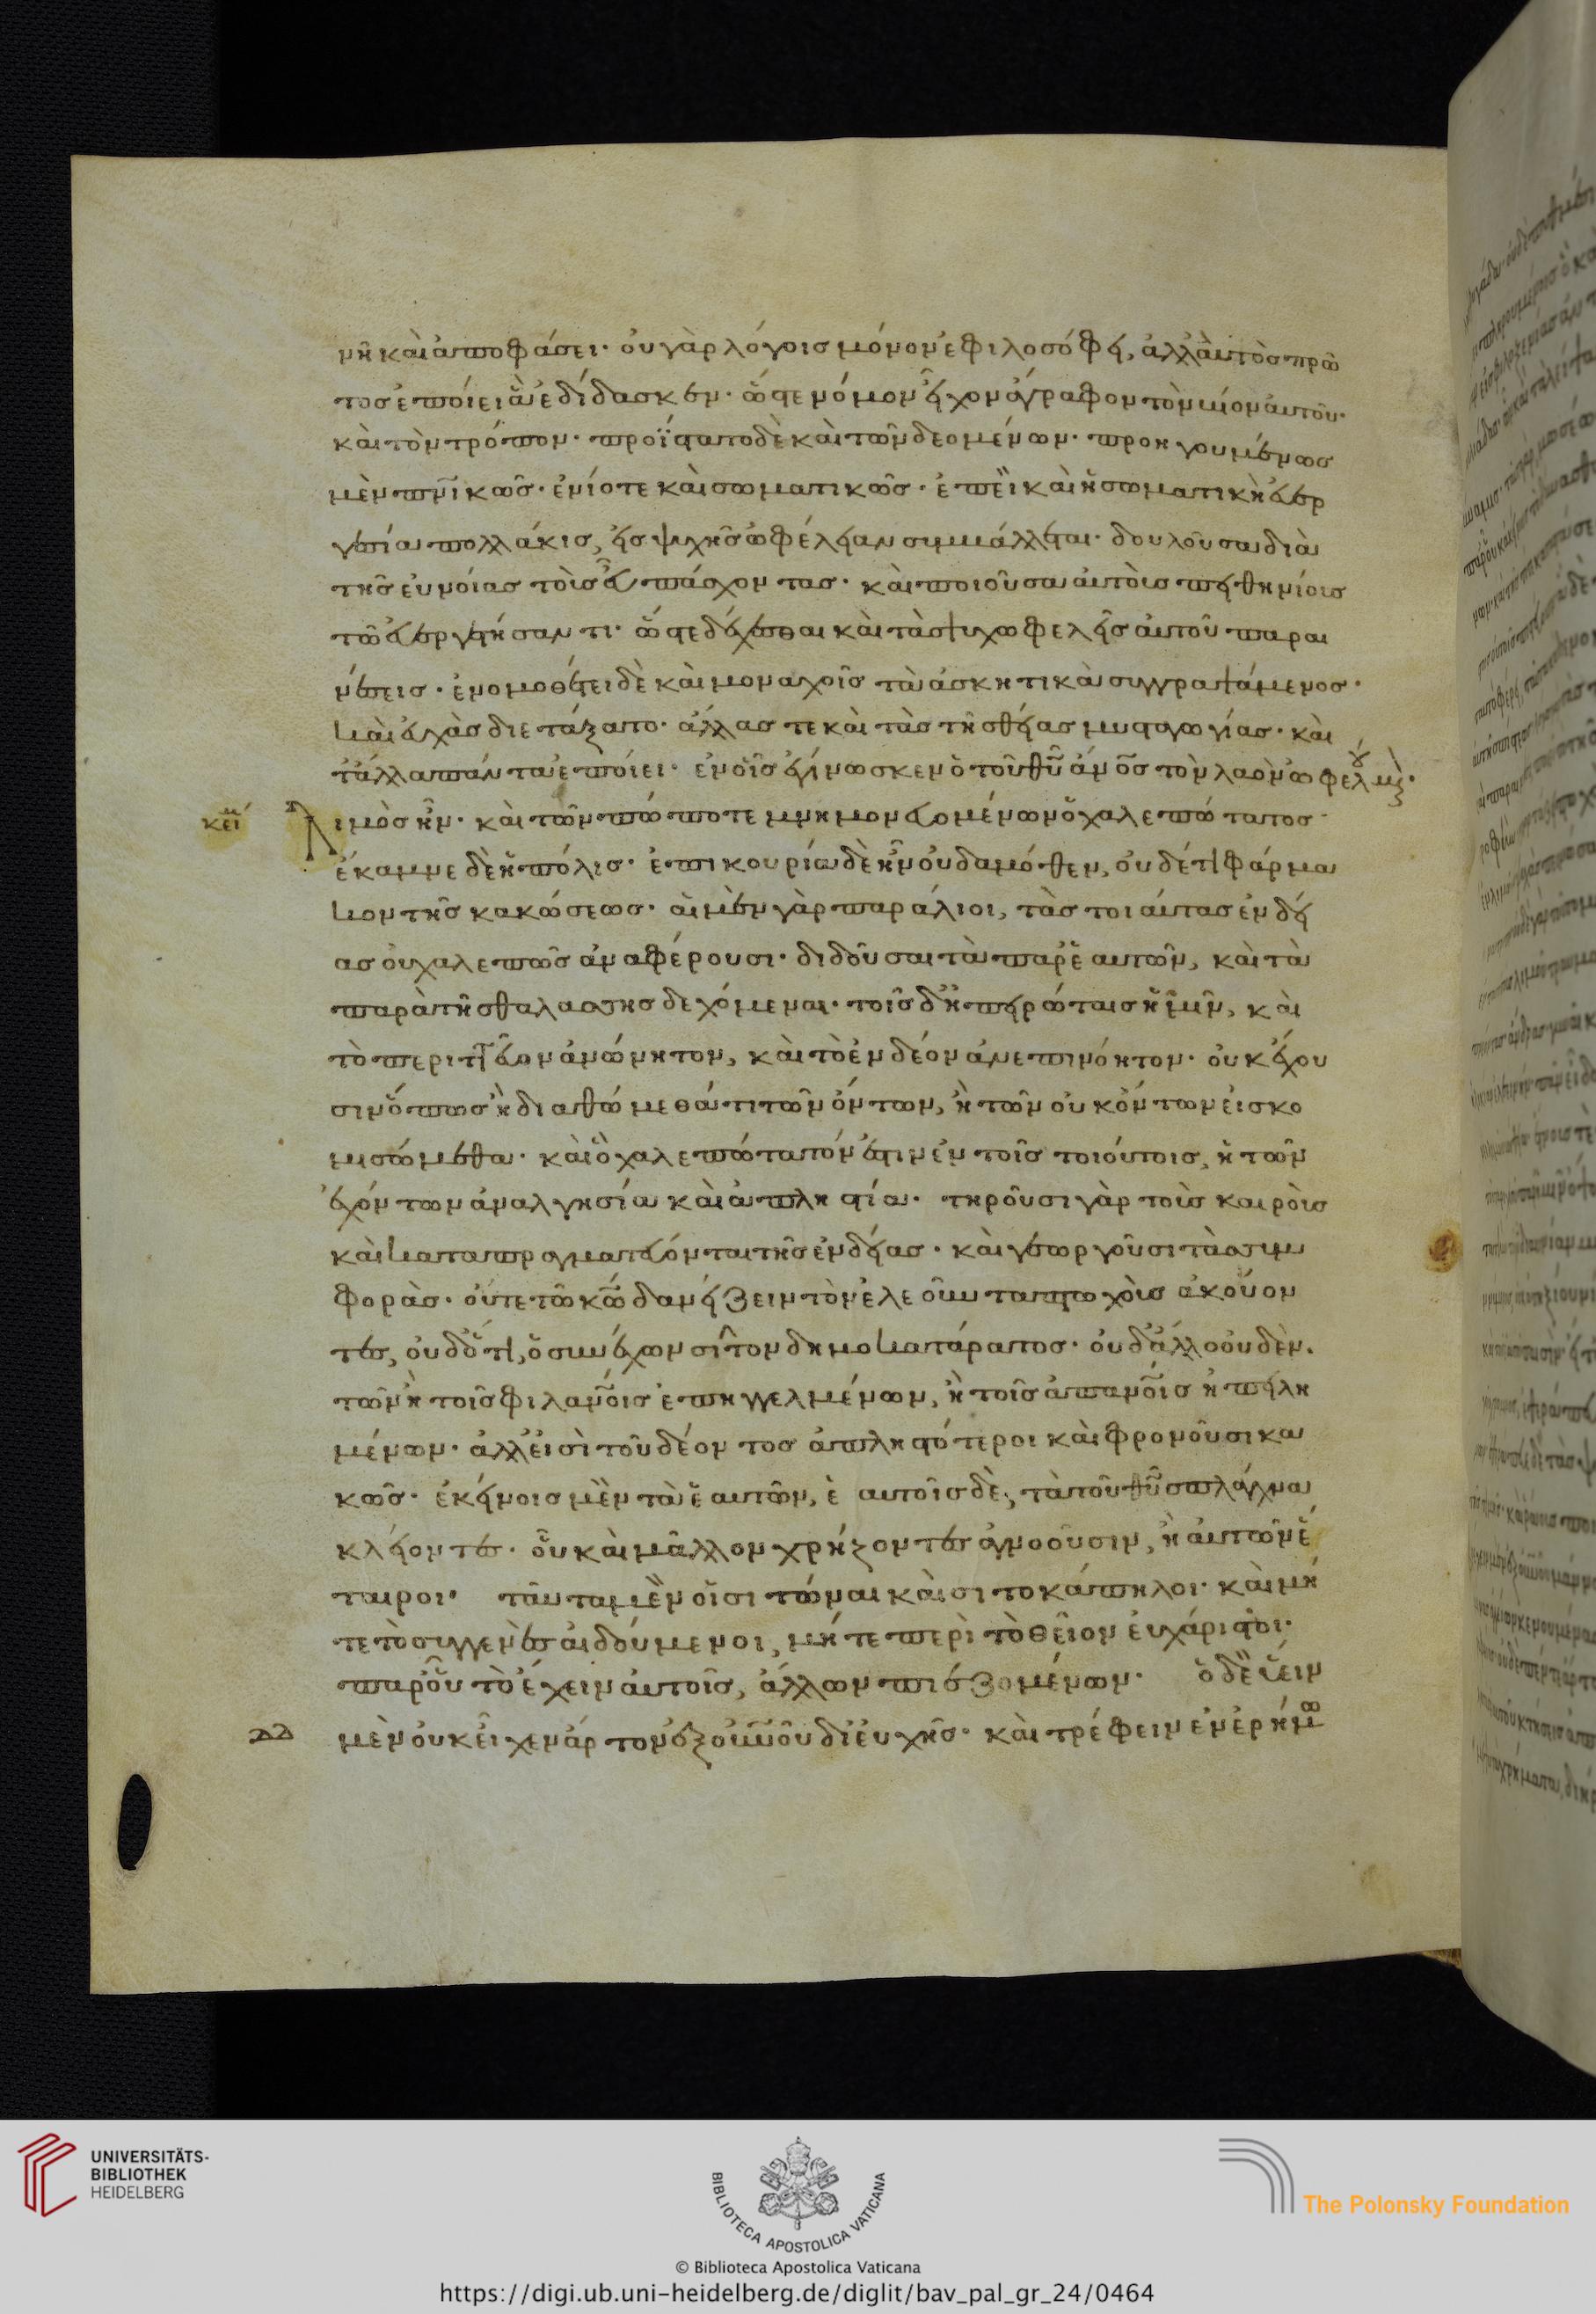 νῆ καὶ ἀποφάσει· οὐ γὰρ λόγοισ μόνον ἐφιλοσόφει, ἀλλ' αὐτὸσ πρῶ
τοσ ἐποίει ἃ ἐδίδασκεν· ὥστε νόμον εἶχον ἄγραφον τὸν βίον αὐτοῦ·
καὶ τὸν τρόπον· προΐστατο δὲ καὶ τῶν δεομένων· προηγουμένωσ
μὲν πνικῶσ· ἐνίοτε καὶ σωματικῶσ· ἐπεὶ καὶ ἡ σωματικὴ εὐερ
γεσία πολλάκισ, εἰσ ψυχῆσ ὠφέλειαν συμβάλλεται· δουλοῦσα διὰ
τῆσ εὐνοίασ τοὺσ εὖ πάσχοντασ· καὶ ποιοῦσα αὐτοὺσ πειθηνίουσ
τῶ εὐεργετήσαντι· ὥστε δέχεσθαι καὶ τὰσ ψυχωφελεῖσ αὐτοῦ παραι
νέσεισ· ἐνομοθέτει δὲ καὶ μοναχοῖσ τὰ ἀσκητικὰ συγγραψάμενοσ·
καὶ εὐχὰσ διετάξατο· ἄλλασ τε καὶ τὰσ τῆσ θείασ μυσταγωγίασ· καὶ
τἄλλα πάντα ἐποίει· ἐν οἷσ ἐγίνωσκεν ὁ τοῦ θῦ ἄνοσ τὸν λαὸν ὠφελ
κεί
Λιμὸσ ἦν· καὶ τῶν πώποτε μνημονευομένων ὁ χαλεπώτατοσ·
ἔκαμνε δὲ ἡ πόλισ· ἐπικουρία δὲ ἦν οὐδαμόθεν, οὐδέ τι φάρμα
κον τῆσ κακώσεωσ· αἱ μὲν γὰρ παράλιοι, τὰσ τοιαύτασ ἐνδεί
ασ οὐ χαλεπῶσ ἀναφέρουσι· διδοῦσαι τὰ παρ' ἑαυτῶν, καὶ τὰ
παρὰ τῆσ θαλάσσησ δεχόμεναι· τοῖσ δ' ἠπειρώταισ ἡμῖν, καὶ
τὸ περιττεῦον ἀνώνητον, καὶ τὸ ἐνδέον ἀνεπινόητον· οὐκ ἔχου
σιν ὅπωσ ἢ διαθώμεθά τι τῶν ὄντων, ἢ τῶν οὐκ ὄντων εἰσκο
μισώμεθα· καὶ ὃ χαλεπώτατόν ἐστιν ἐν τοῖσ τοιούτοισ, ἡ τῶν
ἐχόντων ἀναλγησία καὶ ἀπληστία· τηροῦσι γὰρ τοὺσ καιροὺσ
καὶ καταπραγματεύονται τῆσ ἐνδείασ· καὶ γεωργοῦσι τὰσ συμ
φοράσ· οὔτε τῶ κῶ δανείζειν τὸν ἐλεοῦντα πτωχοὺσ ἀκούον
τεσ, οὐδ' ὅτι, ὁ συνέχων σῖτον δημοκατάρατοσ· οὐδ' ἄλλο οὐδὲν.
τῶν ἢ τοῖσ φιλανοισ ἐπηγγελμένων, ἢ τοῖσ ἀπανοισ ἠπειλη
μένων· ἀλλ' εἰσὶ τοῦ δέοντοσ ἀπληστότεροι καὶ φρονοῦσι κα
κῶσ· ἐκείνοισ μὲν τὰ ἑαυτῶν, ἑαυτοῖσ δὲ, τὰ τοῦ θῦ σπλάγχνα
κλείοντεσ· οὗ καὶ μᾶλλον χρήζοντεσ ἀγνοοῦσιν, ἢ αὐτῶν ἕ
τεροι· ταῦτα μὲν οἱ σιτῶναι καὶ σιτοκάπηλοι· καὶ μή
τε τὸ συγγενὲσ αἰδούμενοι, μήτε περὶ τὸ θεῖον εὐχάριστοι·
παρ' οὗ τὸ ἔχειν αὐτοῖσ, ἄλλων πιεζομένων· ὁ δὲ ὕειν
μὲν οὐκ εἶχεν ἄρτον ἐξ οὐνοῦ δι' εὐχῆσ· καὶ τρέφειν ἐν ἐρήμω
UNIVERSITÄTS-
BIBLIOTHEK
HEIDELBERG
BIBLIOTECA APOSTOLICA VATICANA
© Biblioteca Apostolica Vaticana
The Polonsky Foundation
https://digi.ub.uni-heidelberg.de/diglit/bav_pal_gr_24/0464